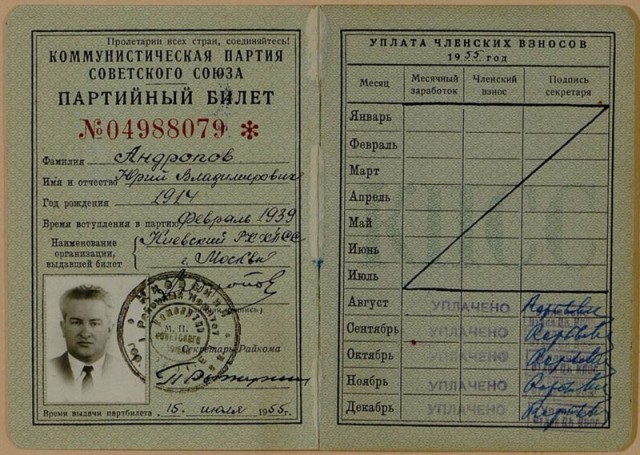 Пролетарии всех стран, соединяйтесь!
КОММУНИСТИЧЕСКАЯ ПАРТИЯ
СОВЕТСКОГО СОЮЗА
ПАРТИЙНЫЙ БИЛЕТ
№04988079 *
Фамилия Андропов
Имя и отчество Юрий Владимирович
Год рождения 1914
Время вступления в партию Февраль 1939
Наименование организации, выдавшей билет Киевский РК КПСС
г. Москвы
М. П.
Секретарь Райкома
Время выдачи партбилета 15 июля 1955 г.
УПЛАТА ЧЛЕНСКИХ ВЗНОСОВ
1955 год
Месяц Месячный заработок Членский взнос Подпись секретаря
Январь
Февраль
Март
Апрель
Май
Июнь
Июль
Август УПЛАЧЕНО
Сентябрь УПЛАЧЕНО
Октябрь УПЛАЧЕНО
Ноябрь УПЛАЧЕНО
Декабрь УПЛАЧЕНО